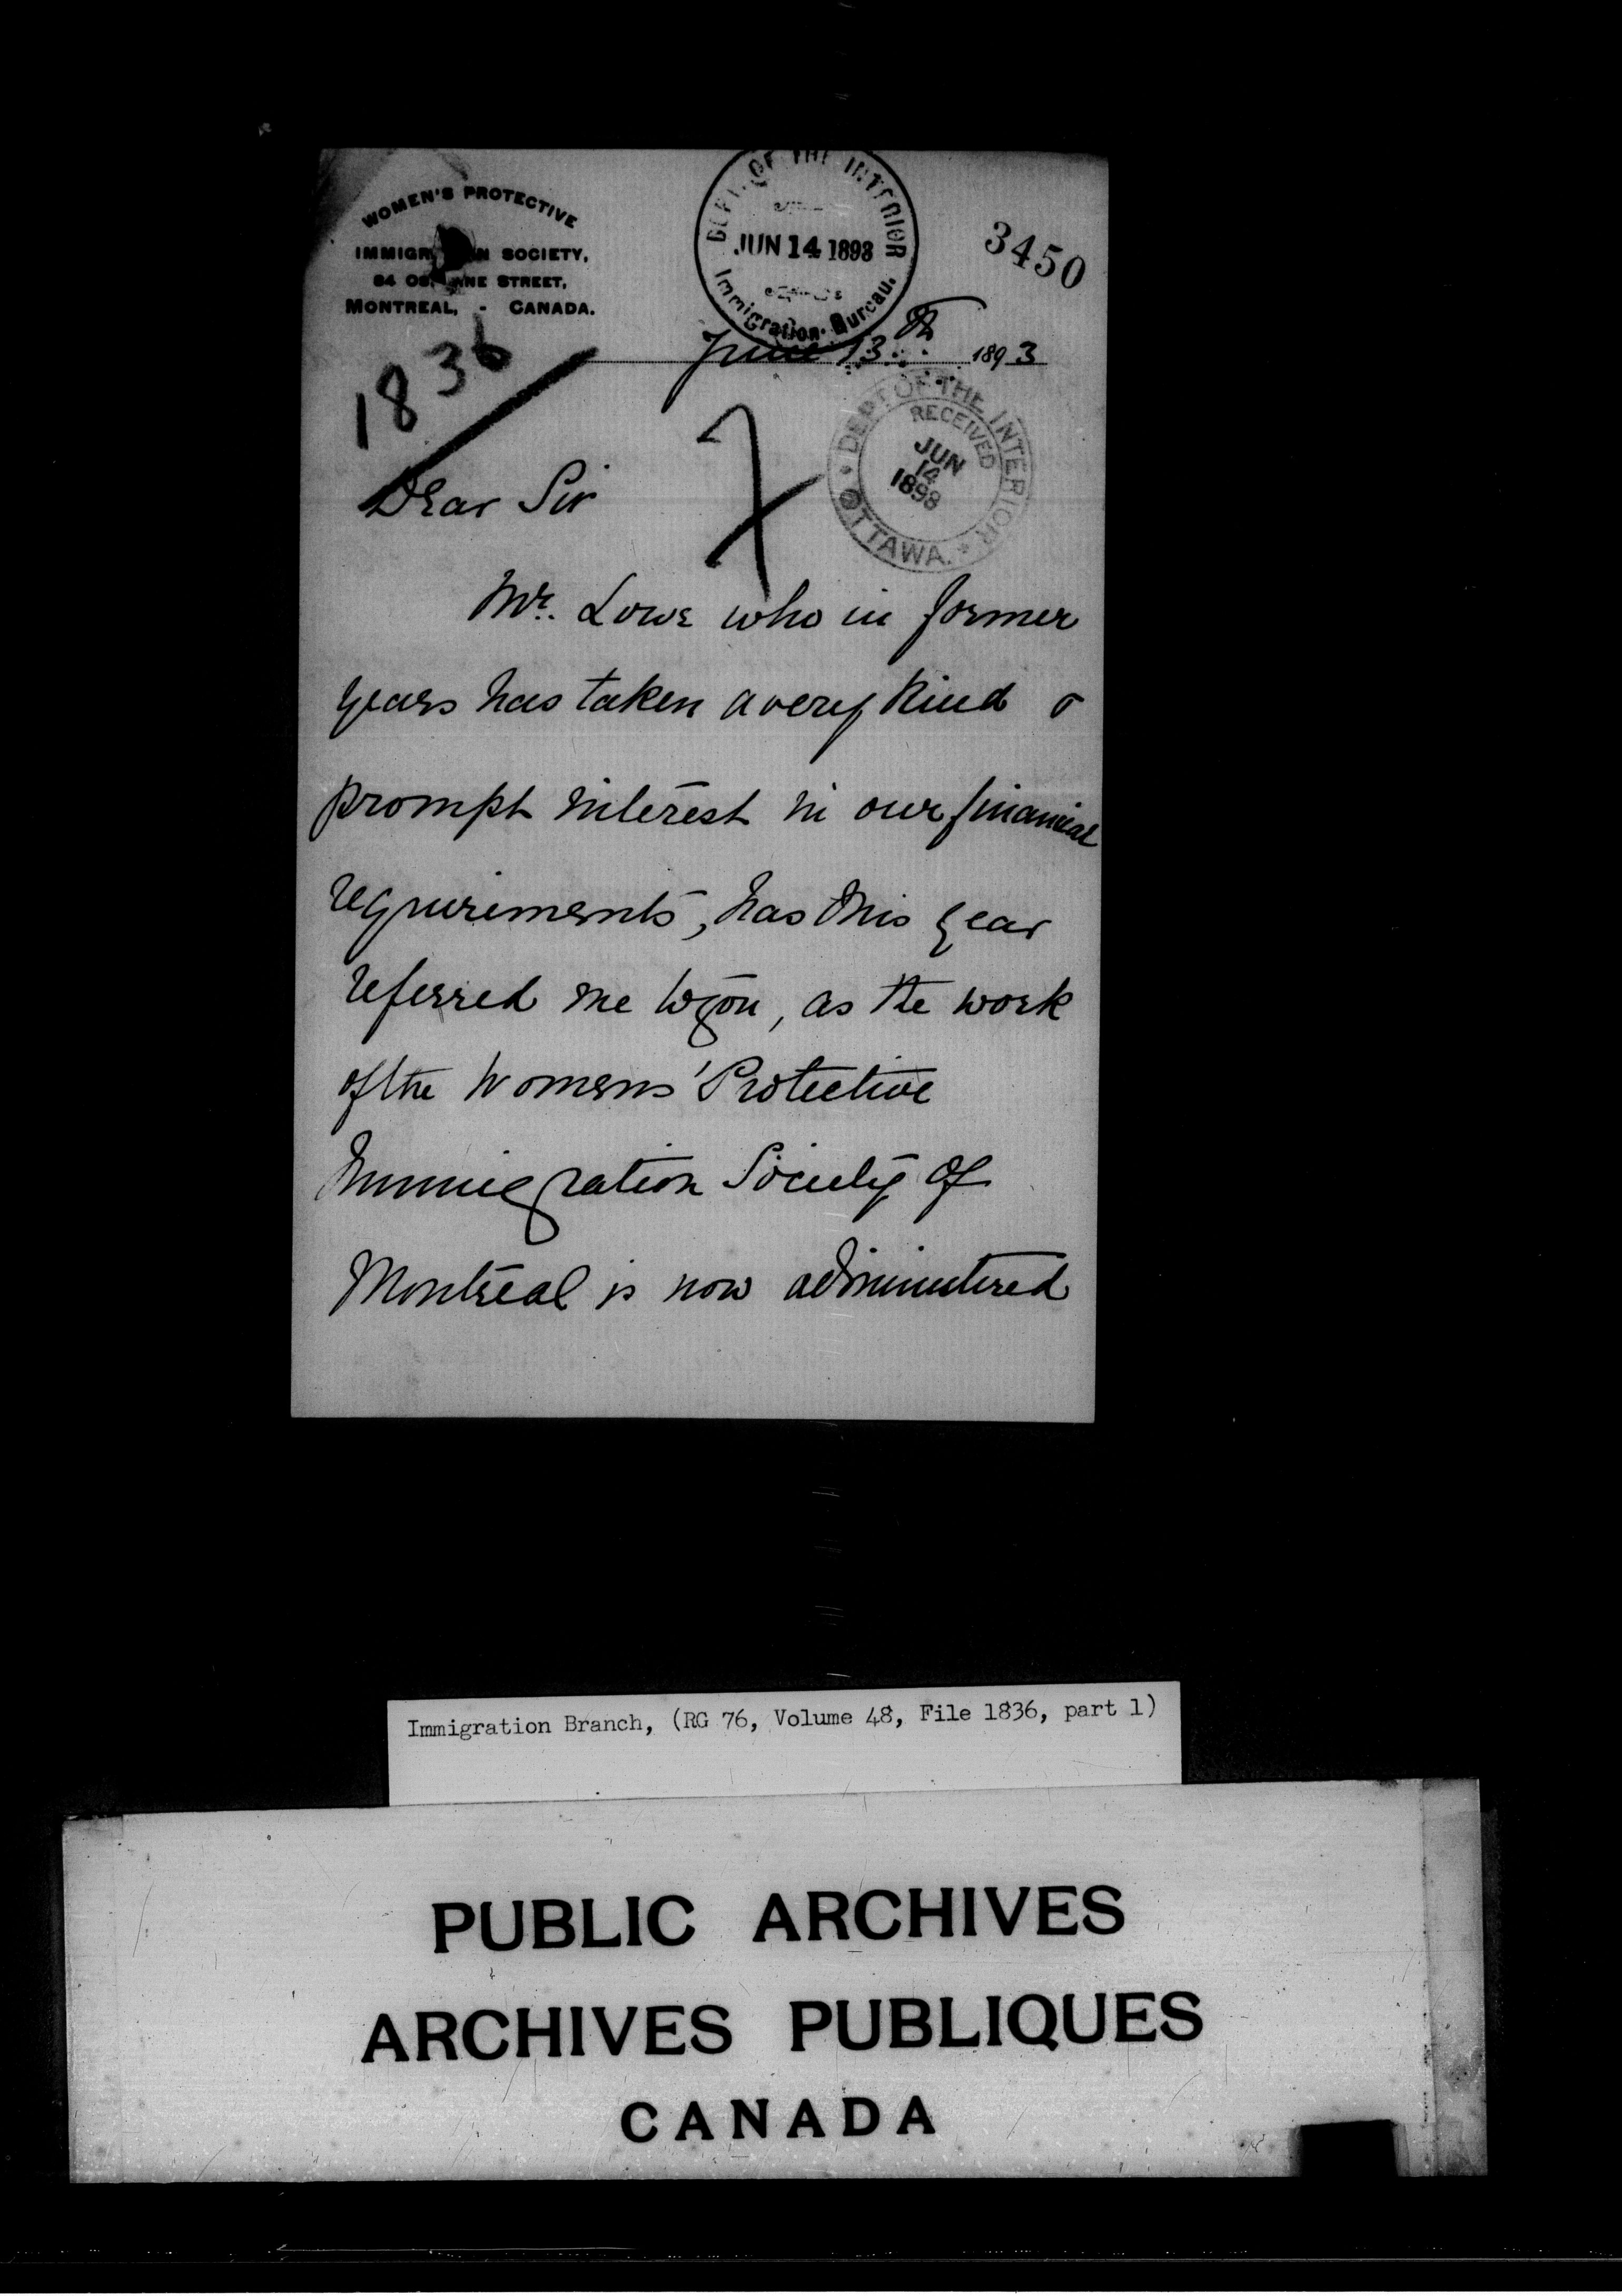 WOMEN'S PROTECTIVE
IMMIGR N SOCIETY,
84 OS NE STREET,
MONTREAL, - CANADA.
DEPT. OF THE INTERIOR
JUN 14 1893
Immigration Bureau.
3450
June 13th 1893
1836
DEPT OF THE INTERIOR
RECEIVED
JUN
14
1893
OTTAWA.
Dear Sir
Mr. Lowe who in former
years has taken a very kind &
prompt interest in our financial
requirements, has this year
referred me to you, as the work
of the Womens' Protective
Immigration Society of
Montreal is now administered
Immigration Branch, (RG 76, Volume 48, File 1836, part 1)
PUBLIC ARCHIVES
ARCHIVES PUBLIQUES
CANADA